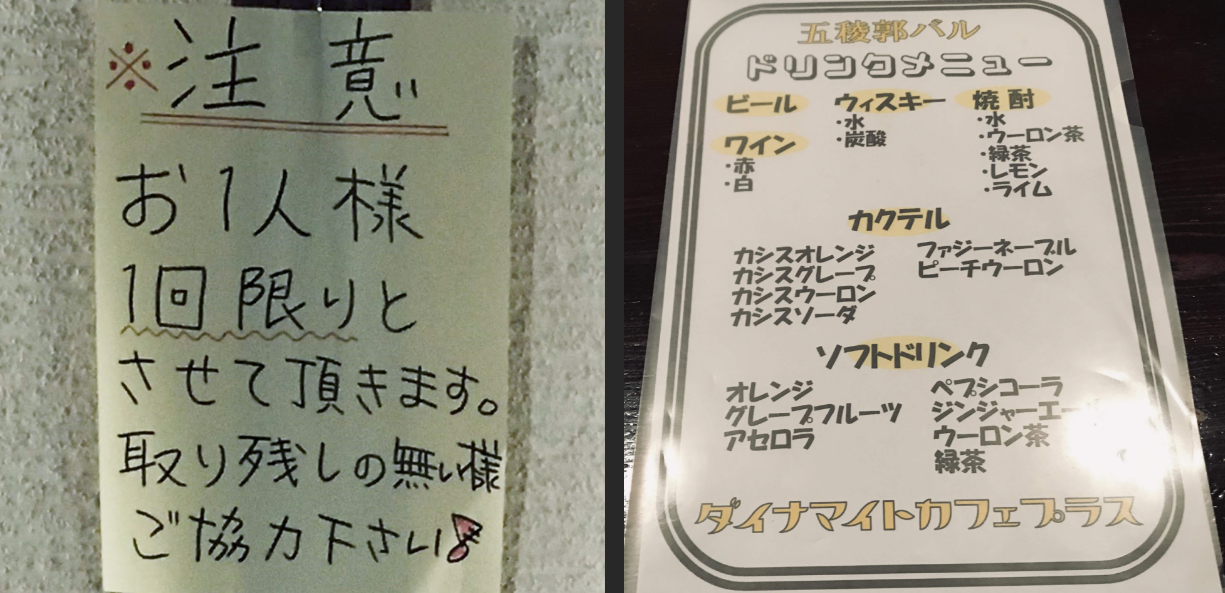 ※注意
お1人様
1回限りと
させて頂きます。
取り残しの無い様
ご協力下さい!
五稜郭バル
ドリンクメニュー
ビール
ワイン
・赤
・白
ウィスキー
・水
・炭酸
焼酎
・水
・ウーロン茶
・緑茶
・レモン
・ライム
カクテル
カシスオレンジ
カシスグレープ
カシスウーロン
カシスソーダ
ファジーネーブル
ピーチウーロン
ソフトドリンク
オレンジ
グレープフルーツ
アセロラ
ペプシコーラ
ジンジャーエー
ウーロン茶
緑茶
ダイナマイトカフェプラス